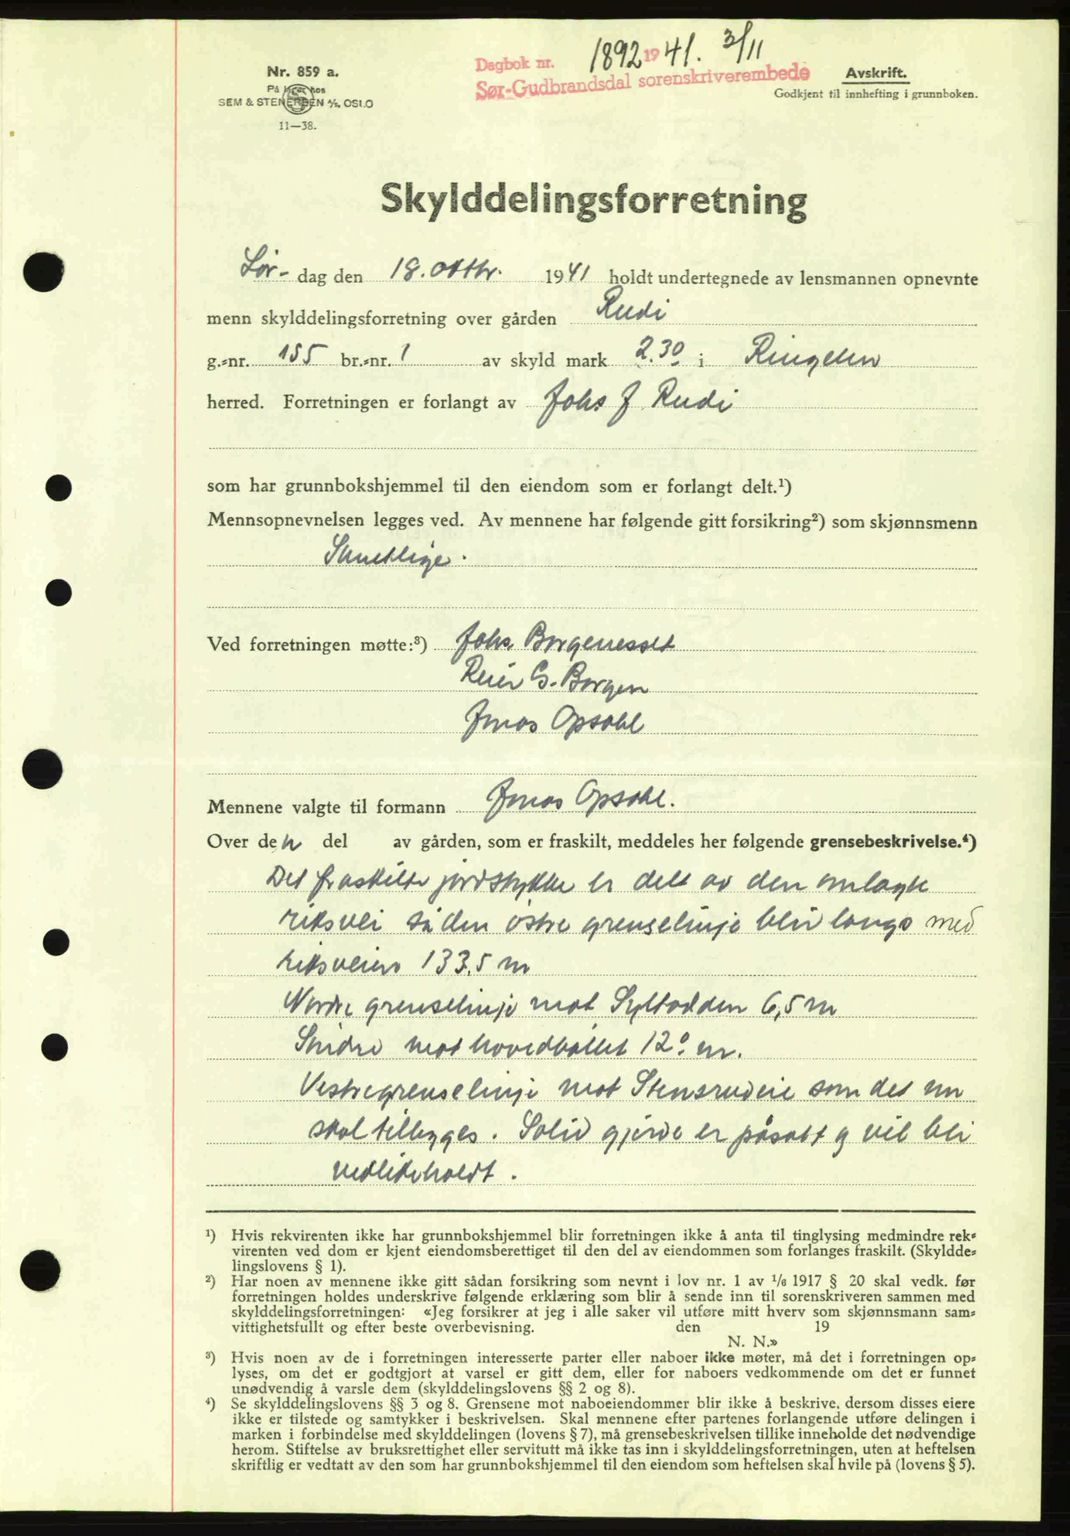 Dagbok nr. 1892 1941. 3/11
Sør-Gudbrandsdal sorenskriverembede
Nr. 859 a.
På lager hos
SEM & STENERSEN A/S, OSLO
11—38.
Avskrift.
Godkjent til innhefting i grunnboken.
Skylddelingsforretning
Lør- dag den 18. oktbr. 1941 holdt undertegnede av lensmannen opnevnte
menn skylddelingsforretning over gården Rudi
g.=nr. 155 br.=nr. 1 av skyld mark 2.30 i Ringebu
herred. Forretningen er forlangt av Johs J Rudi
som har grunnbokshjemmel til den eiendom som er forlangt delt.¹)
Mennsopnevnelsen legges ved. Av mennene har følgende gitt forsikring²) som skjønnsmenn
Samtlige.
Ved forretningen møtte:³) Johs. Borgenesset
Reier G. Borgen
Jonas Opsahl
Mennene valgte til formann Jonas Opsahl.
Over den del av gården, som er fraskilt, meddeles her følgende grensebeskrivelse.⁴)
Det fraskilte jordstykke er delt av den omlagte
riksvei så den østre grenselinje blir langs med
riksveien 133,5 m
Nordre grenselinje mot Syltodden 6,5 m
Søndre mot hovedbølet 12⁰ m.
Vestregrenselinje mot Stensrudeie som det nu
skal tillegges. Solid gjerde er påsatt og vil bli
vedlikeholdt.
¹) Hvis rekvirenten ikke har grunnbokshjemmel blir forretningen ikke å anta til tinglysing medmindre rek=
virenten ved dom er kjent eiendomsberettiget til den del av eiendommen som forlanges fraskilt. (Skyldde=
lingslovens § 1).
²) Har noen av mennene ikke gitt sådan forsikring som nevnt i lov nr. 1 av 1/6 1917 § 20 skal vedk. før
forretningen holdes underskrive følgende erklæring som blir å sende inn til sorenskriveren sammen med
skylddelingsforretningen: «Jeg forsikrer at jeg i alle saker vil utføre mitt hverv som skjønnsmann sam=
vittighetsfullt og efter beste overbevisning. den 19
N. N.»
³) Hvis noen av de i forretningen interesserte parter eller naboer ikke møter, må det i forretningen op=
lyses, om det er godtgjort at varsel er gitt dem, eller for naboers vedkommende om det er funnet
unødvendig å varsle dem (skylddelingslovens §§ 2 og 8).
⁴) Se skylddelingslovens §§ 3 og 8. Grensene mot naboeiendommer blir ikke å beskrive, dersom disses eiere
ikke er tilstede og samtykker i beskrivelsen. Skal mennene efter partenes forlangende utføre delingen i
marken i forbindelse med skylddelingen (lovens § 7), må grensebeskrivelsen tillike inneholde det nødvendige
herom. Stiftelse av bruksrettighet eller servitutt må ikke tas inn i skylddelingsforretningen, uten at heftelsen
skriftlig er vedtatt av den som har grunnbokshjemmel til den eiendom som heftelsen skal hvile på (lovens § 5).